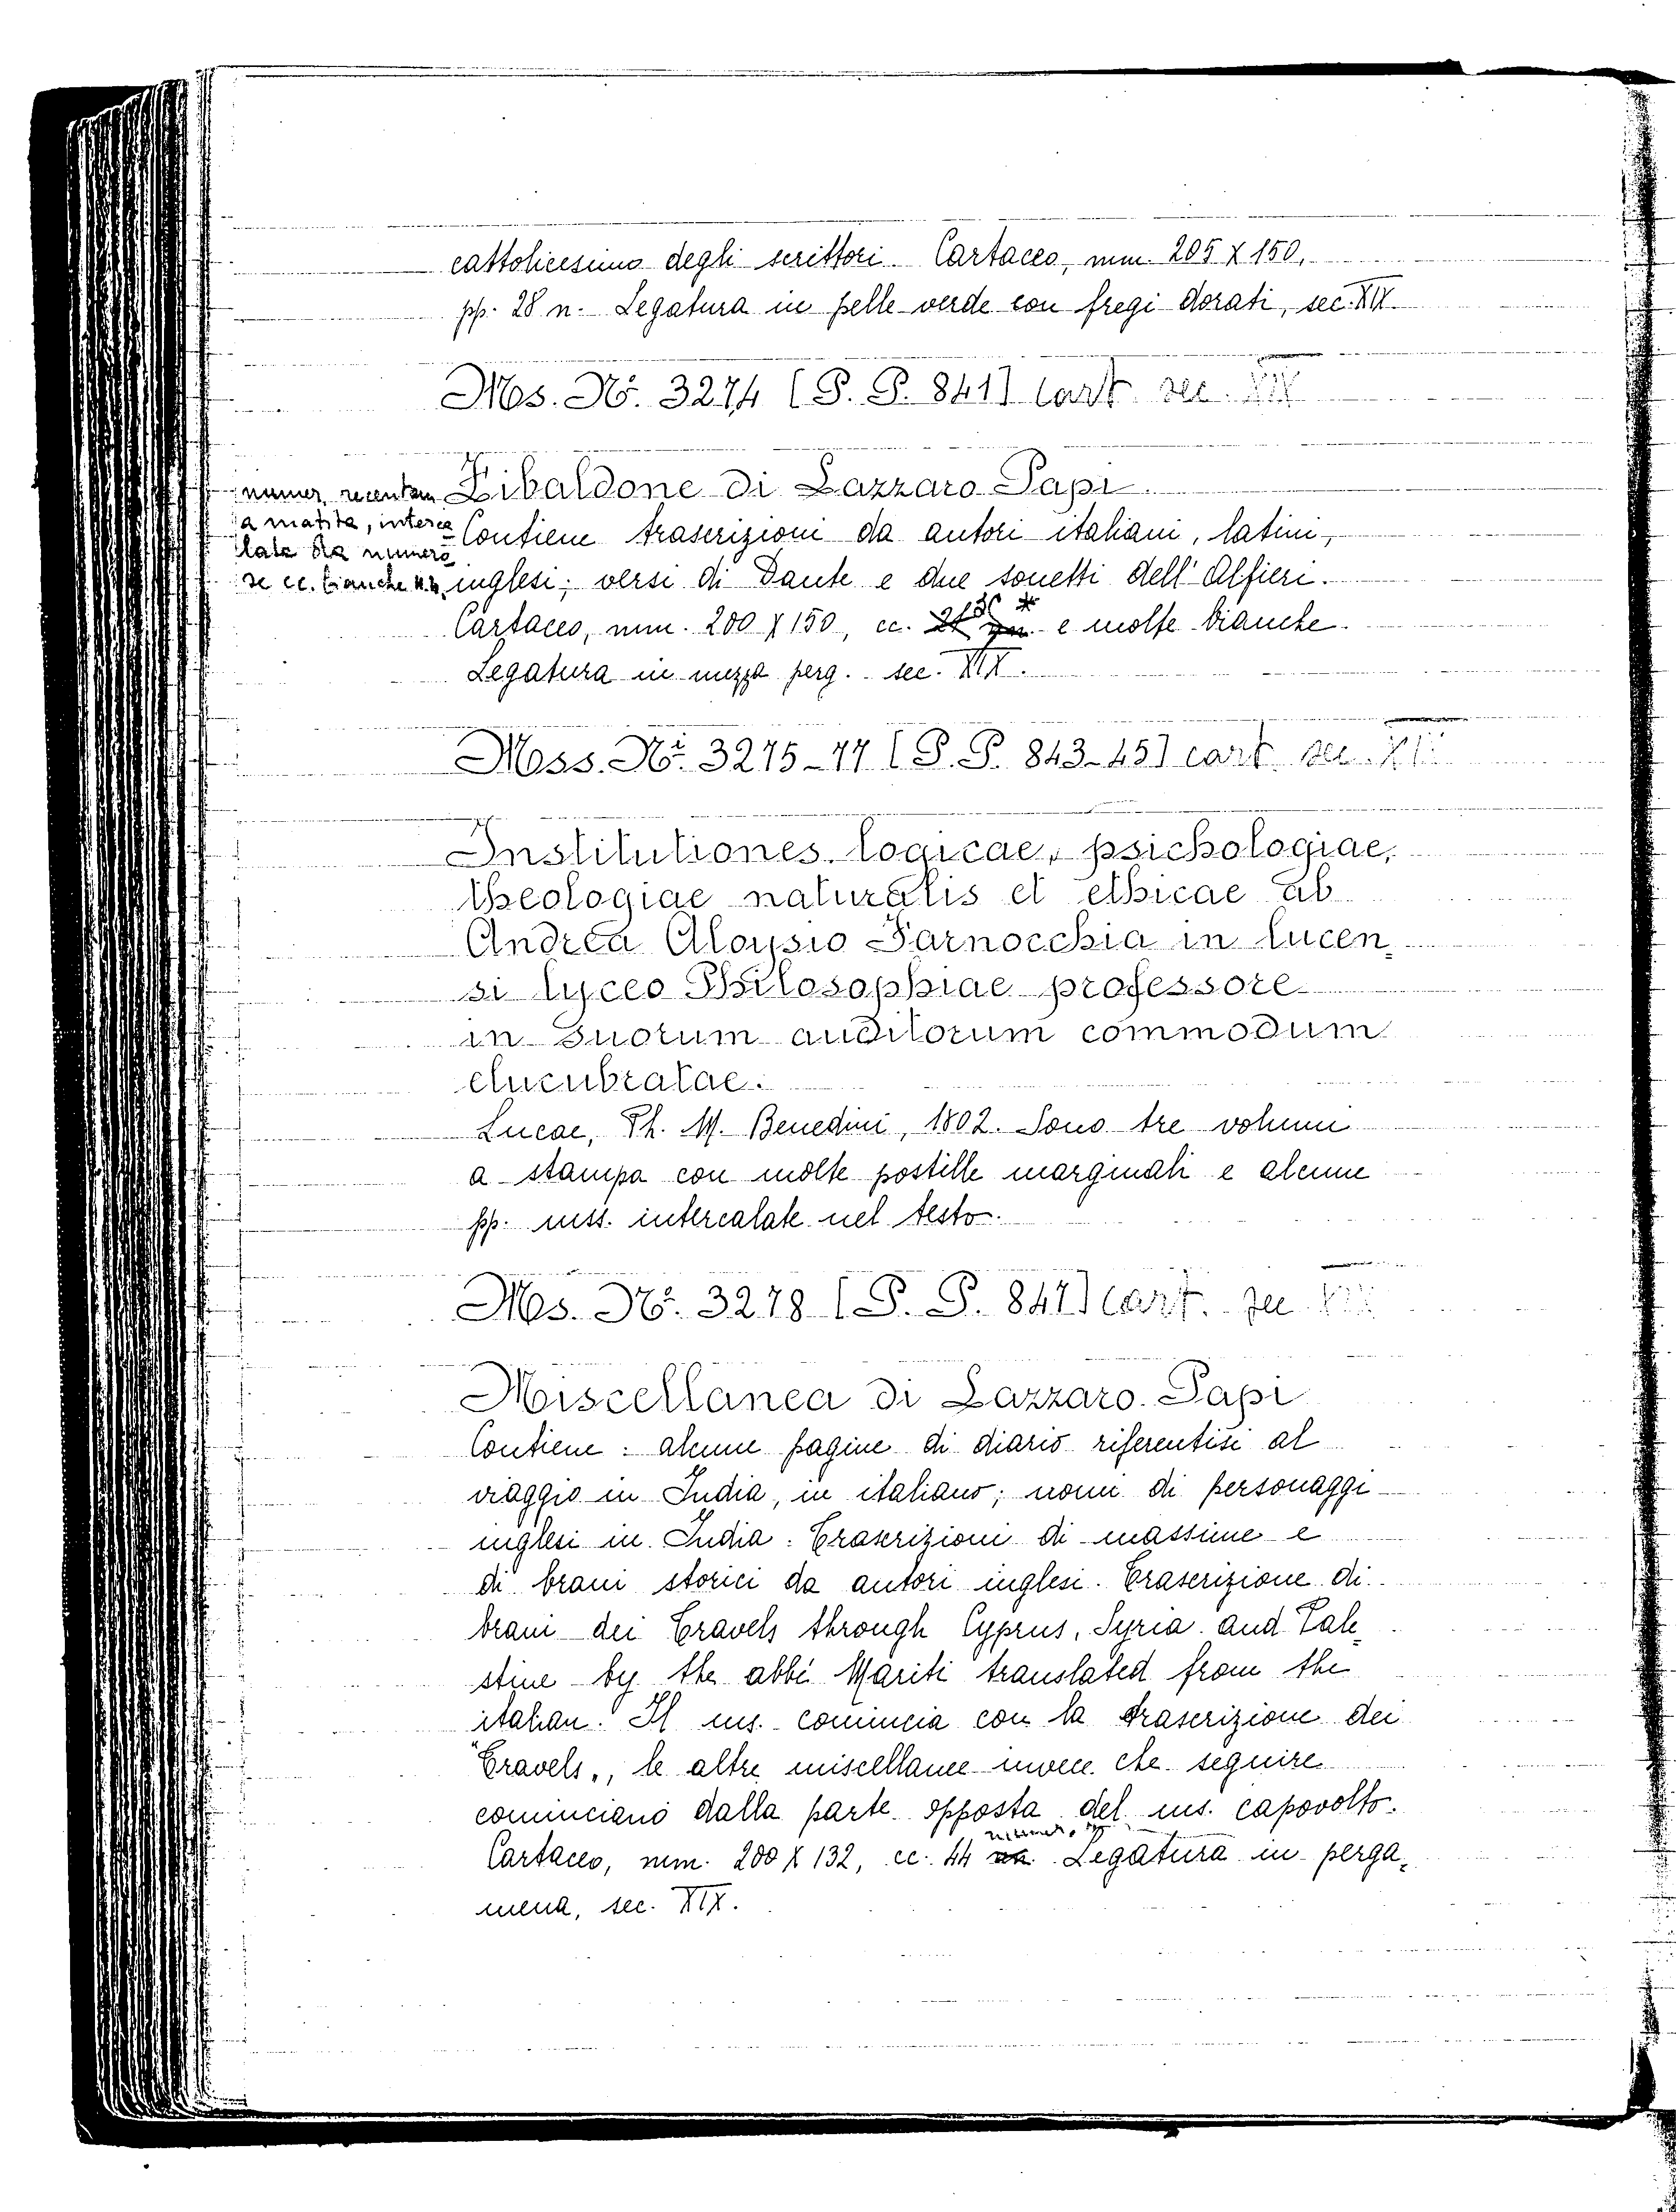 cattolicesimo degli scrittori. Cartaceo, mm. 205 X 150,
pp. 28 n. Legatura in pelle verde con fregi dorati, sec. XIX.
Ms. N°. 3274 (P. P. 841) cart. sec. XIX
Zibaldone di Lazzaro Papi.
Contiene trascrizioni da autori italiani, latini,
inglesi; versi di Dante e due sonetti dell'Alfieri.
numer. recente
a matita, interca
late da numero
se cc. bianche
Cartaceo, mm. 200 X 150, cc. e molte bianche.
Legatura in mezza perg. sec. XIX.
Mss. N°. 3275-77 (P. P. 843-45) cart. sec.
Institutiones logicae, psichologiae,
theologiae naturalis et ethicae ab
Andrea Aloysio Parnocchia in lucen_
si lyceo Philosophiae professore
in suorum auditorum commodum
elucubratae.
Lucae, Th. M. Benedini, 1802. Sono tre volumi
a stampa con molte postille marginali e alcune
pp. mss. intercalate nel testo.
Ms. N°. 3278 (P. P. 847) cart. sec
Miscellanea di Lazzaro Papi
Contiene: alcune pagine di diario riferentisi al
viaggio in India, in italiano; nomi di personaggi
inglesi in India. Trascrizioni di massime e
di brani storici da autori inglesi. Trascrizione di
brani dei Travels through Cyprus, Syria and Pale_
stine by the abbé Mariti translated from the
italian. Il ms. comincia con la trascrizione dei
"Travels", le altre miscellanee invece che seguire
cominciano dalla parte opposta del ms. capovolto.
Cartaceo, mm. 200 X 132, cc. 44 numer. Legatura in perga_
mena, sec. XIX.